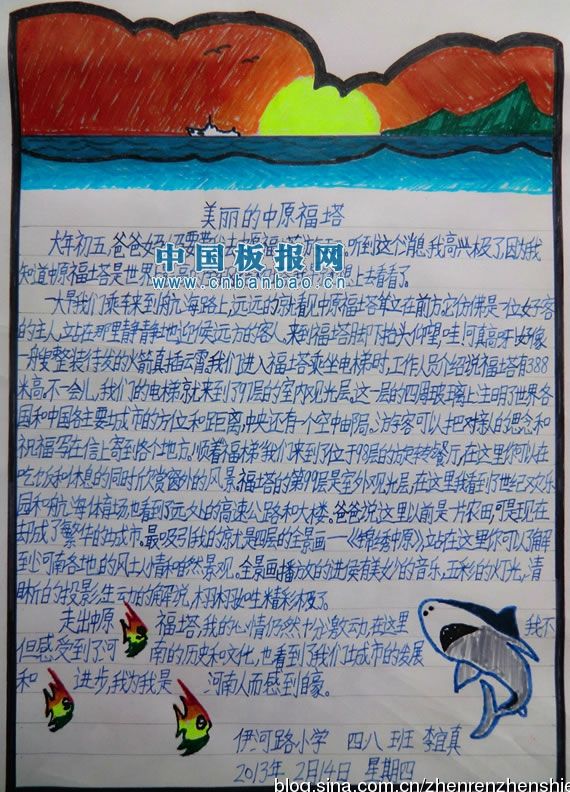 美丽的中原福塔
大年初五,爸爸妈妈要带我去中原福塔 听到这个消息,我高兴极了,因为我
知道中原福塔是世界 想上去看看了。
中国板报网
www.cnbanbao.cn
一大早我们乘车来到航海路上,远远的就看见中原福塔耸立在前方,它仿佛是一位好客
的主人,站在那里静静地迎候远方的客人,来到福塔脚下抬头仰望,哇!可真高呀!好像
一艘整装待发的火箭直插云霄,我们进入福塔乘坐电梯时,工作人员介绍说福塔有388
米高,不一会儿,我们的电梯就来到了97层的室内观光层,这一层的四周玻璃上注明了世界各
国和中国各主要城市的方位和距离,中央还有一个空中邮局。访客可以把对亲人的思念和
祝福写在信上寄到各个地方,顺着福梯我们来到了位于98层的旋转餐厅,在这里你可以在
吃饭和休息的同时欣赏窗外的风景,福塔的第99层是室外观光层,在这里我看到了世纪欢乐
园和航海体育场,也看到了远处的高速公路和大楼。爸爸说这里以前是片农田,可是现在
却成了繁华的城市。最吸引我的就是四层的全景画——《锦绣中原》站在这里你可以了解
到河南各地的风土人情和自然景观。全景画播放的进候有美妙的音乐,五彩的灯光,清
晰的投影,生动的解说,栩栩如生精彩极了。
走出中原 福塔,我的心情仍然十分激动,在这里 我不
但感受到了河 南的历史和文化,也看到了我们城市的发展
和 进步,我为我是 河南人而感到自豪。
伊河路小学 四八班 李宜真
2013年2月14日 星期四
blog.sina.com.cn/zhenrenzhenshie